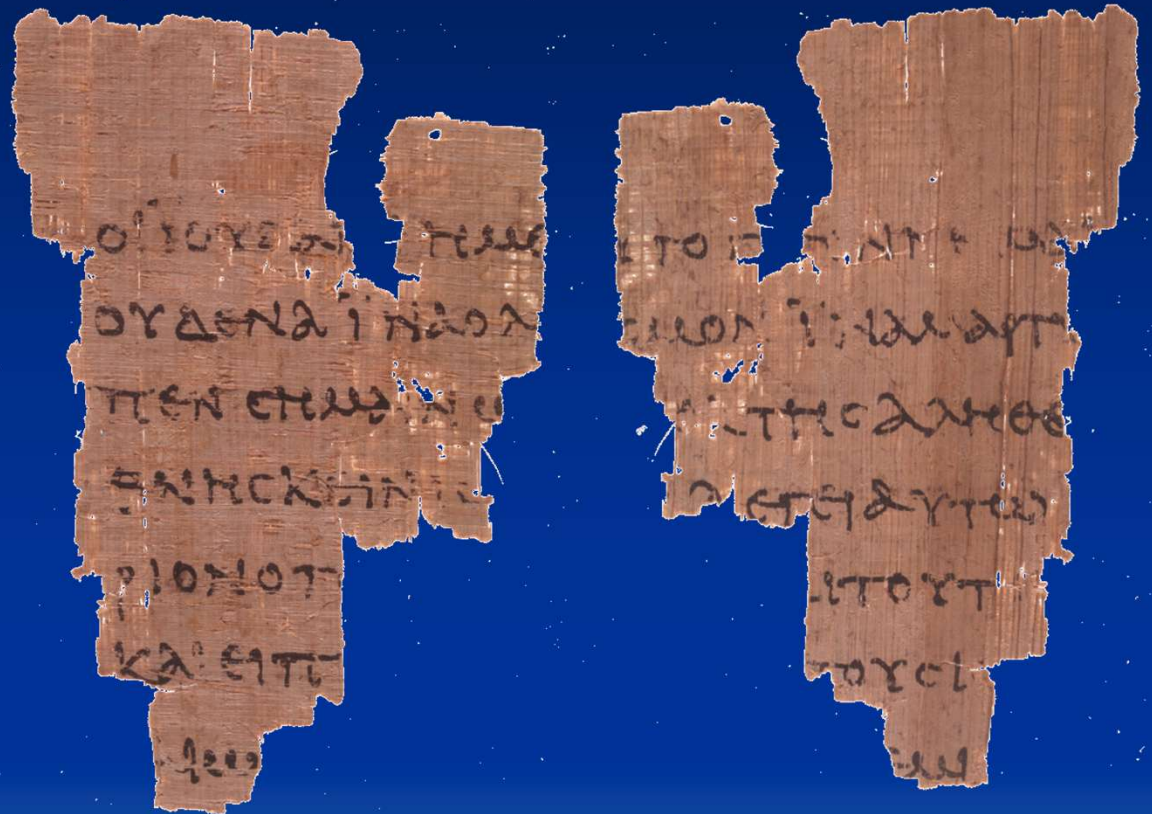 ΟΙ ΙΟΥΔΑΙ ΗΜΕ
ΟΥΔΕΝΑ ΙΝΑ Ο Λ
ΠΕΝ ΣΗΜΑΙΝΩ
ΘΝΗΣΚΕΙΝ ΙΣ
ΡΙΟΝ Ο Π
ΚΑΙ ΕΙΠ
ΑΙΩ
ΤΟ
ΣΜΟΝ ΙΝΑ ΜΑΡΤΥ
ΤΗΣ ΑΛΗΘΕ
ΛΕΓΕΙ ΑΥΤΩ
ΑΙ ΤΟΥΤ
ΤΟΥΣ Ι
ΕΜΙ